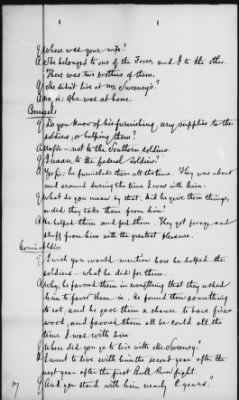 Q Where was your wife?
A She belonged to one of the Foxes, and I to the other.
There was two brothers of them.
Q She didn't live at Mr. Sweeney's?
A No, sir; she was at home.
Counsel:
Q Do you know of his furnishing, any supplies to the
soldiers, or helping them?
A No sir – not to the Southern soldiers
Q I mean to the federal soldiers?
A Yes, sir; he furnished them all the time. They was about
and around during the time I was with him.
Q What do you mean by that? Did he give them things,
or did they take them from him?
A He helped them and fed them. They got forage and
stuff from him with the greatest pleasure.
Q I wish you would mention how he helped the
soldiers – what he did for them.
A Why, he favored them in everything that they asked
him to favor them in. He found them something
to eat, and he gave them a chance to have fire
wood, and favored them all he could all the
time I was with him
Q When did you go to live with Mr. Sweeney?
A I went to live with him the second year after the
next year after the first Bull Run fight.
Q And you stayed with him nearly 2 years?